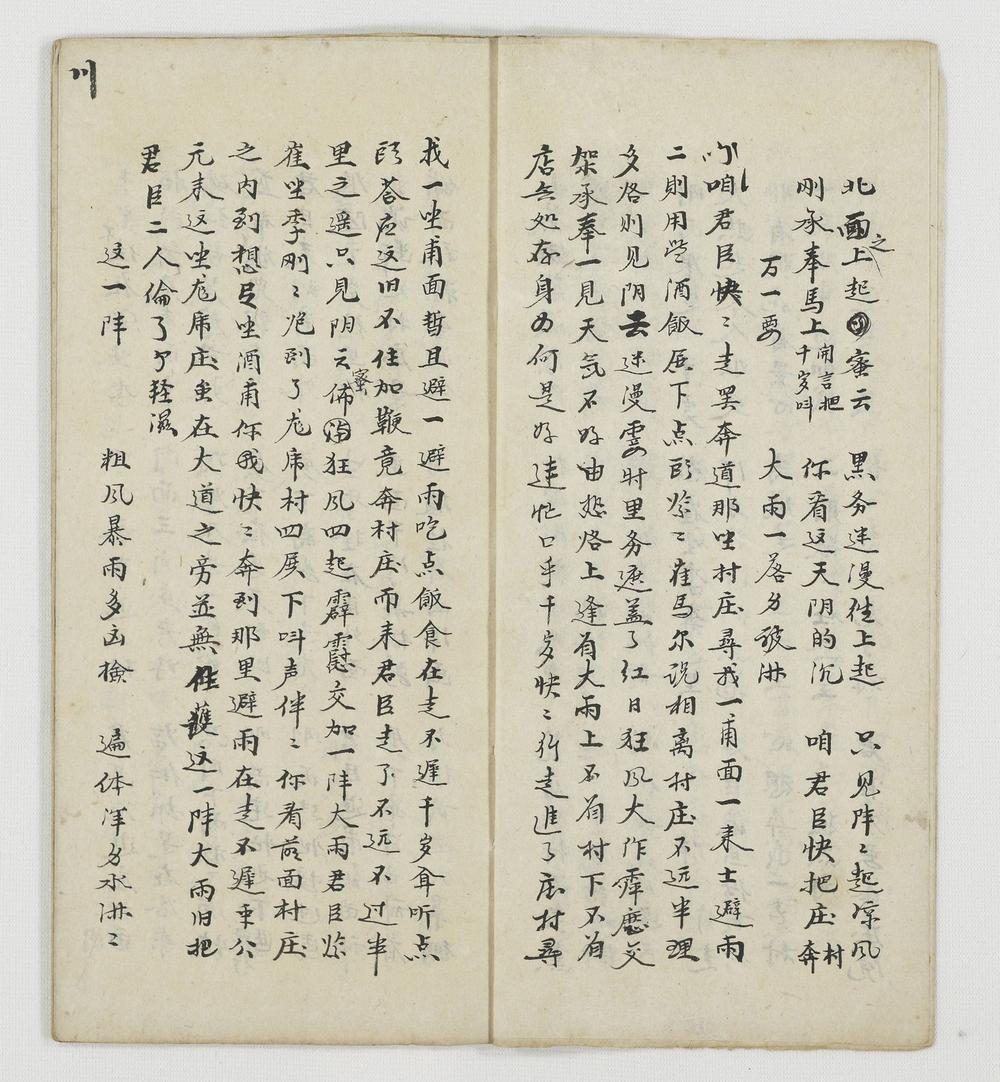 北面之上起蜜云　黑务迷漫往上起　只见阵〻起凉风
刚承奉馬上開言把千岁叫　你看这天阴的沉　咱君臣快把庄村奔
万一要　大雨一落身被淋
咱君臣快〻走罢奔道那坐村庄尋找一甫面一来士避雨
二則用些酒飯展下点頭催馬尔説相离村庄不远半理
多咯则见阴云迷漫霎时里务遮盖了红日狂风大作霹雳交
架承奉一見天気不好由咯上逢有大雨上不有村下不有
店去处存身为何是好連忙口乎千岁快〻行走進了庄村尋
找一坐甫面暫且避一避雨吃点飯食在走不遲千岁耸听点
頭荅应这旧不住加鞭竟奔村庄而来君臣走了不远不过半
里之遥只見阴云佈蜜狂风四起霹靂交加一阵大雨君臣
崔坐季刚〻跑到了龙席村四展下叫声伴〻你看前面村庄
之内到想是坐酒甫你我快〻奔到那里避雨在走不遲秉公
元来这坐龙席庄虽在大道之旁並無住護这一阵大雨旧把
君臣二人倫了个轻滋
这一阵　粗风暴雨多凶檢　遍体渾身水淋〻
川